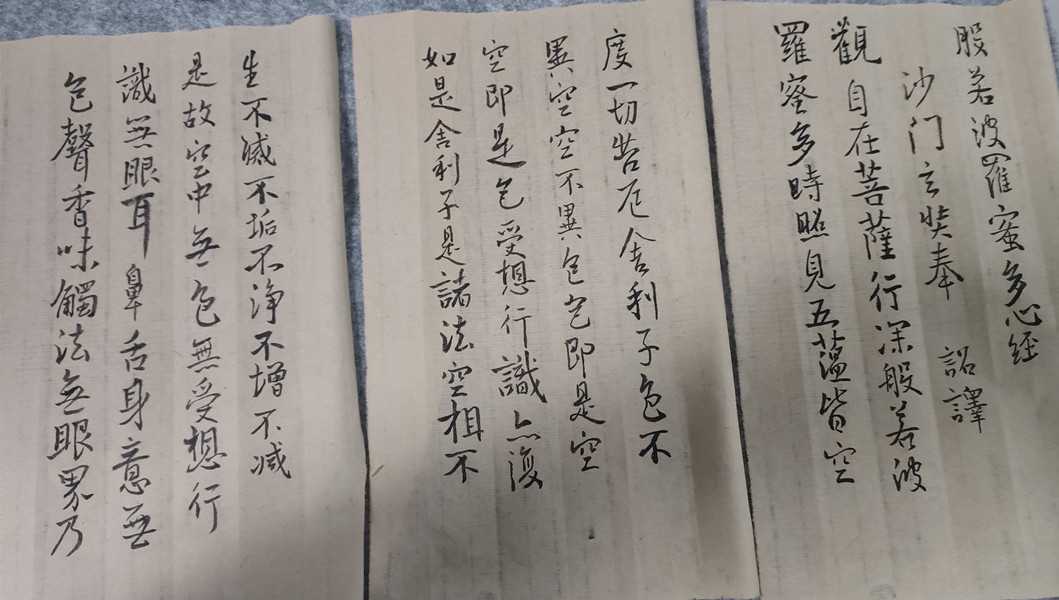 般若波羅蜜多心経
沙门玄奘奉 詔譯
觀自在菩薩行深般若波
羅蜜多時照見五蕴皆空
度一切苦厄舍利子色不
異空空不異色色即是空
空即是色受想行識亦復
如是舍利子是諸法空相不
生不滅不垢不浄不增不减
是故空中无色無受想行
識無眼耳鼻舌身意無
色聲香味觸法無眼界乃